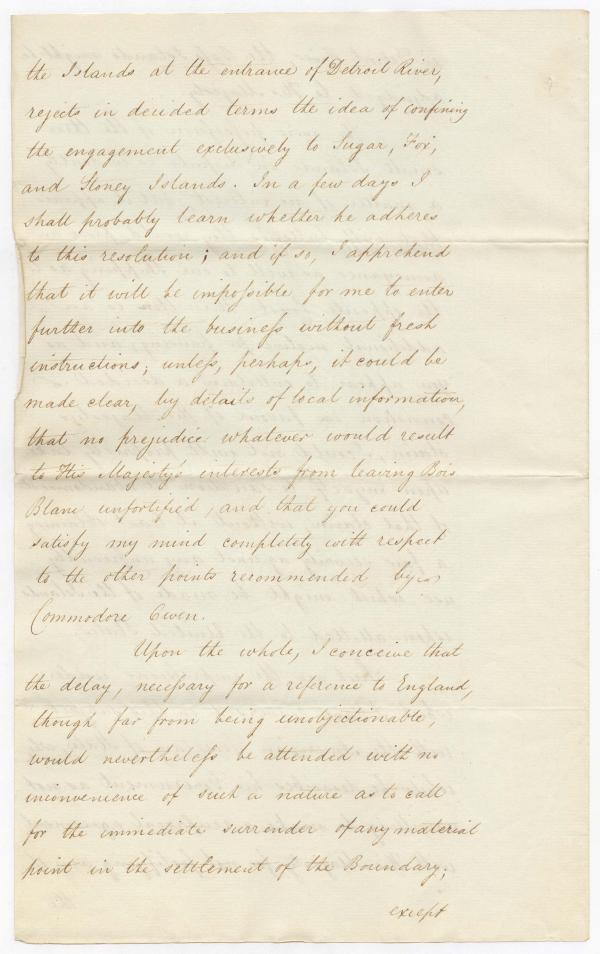 the Islands at the entrance of Detroit River,
rejects in decided terms the idea of confining
the engagement exclusively to Sugar, Fox,
and Stoney Islands. In a few days I
shall probably learn whether he adheres
to this resolution; and if so, I apprehend
that it will be impossible for me to enter
further into the business without fresh
instructions; unless, perhaps, it could be
made clear, by details of local information,
that no prejudice whatever would result
to His Majesty's interests from leaving Bois
Blanc unfortified, and that you could
satisfy my mind completely with respect
to the other points recommended by
Commodore Owen.
Upon the whole, I conceive that
the delay, necessary for a reference to England,
though far from being unobjectionable,
would nevertheless be attended with no
inconvenience of such a nature as to call
for the immediate surrender of any material
point in the settlement of the Boundary;
except